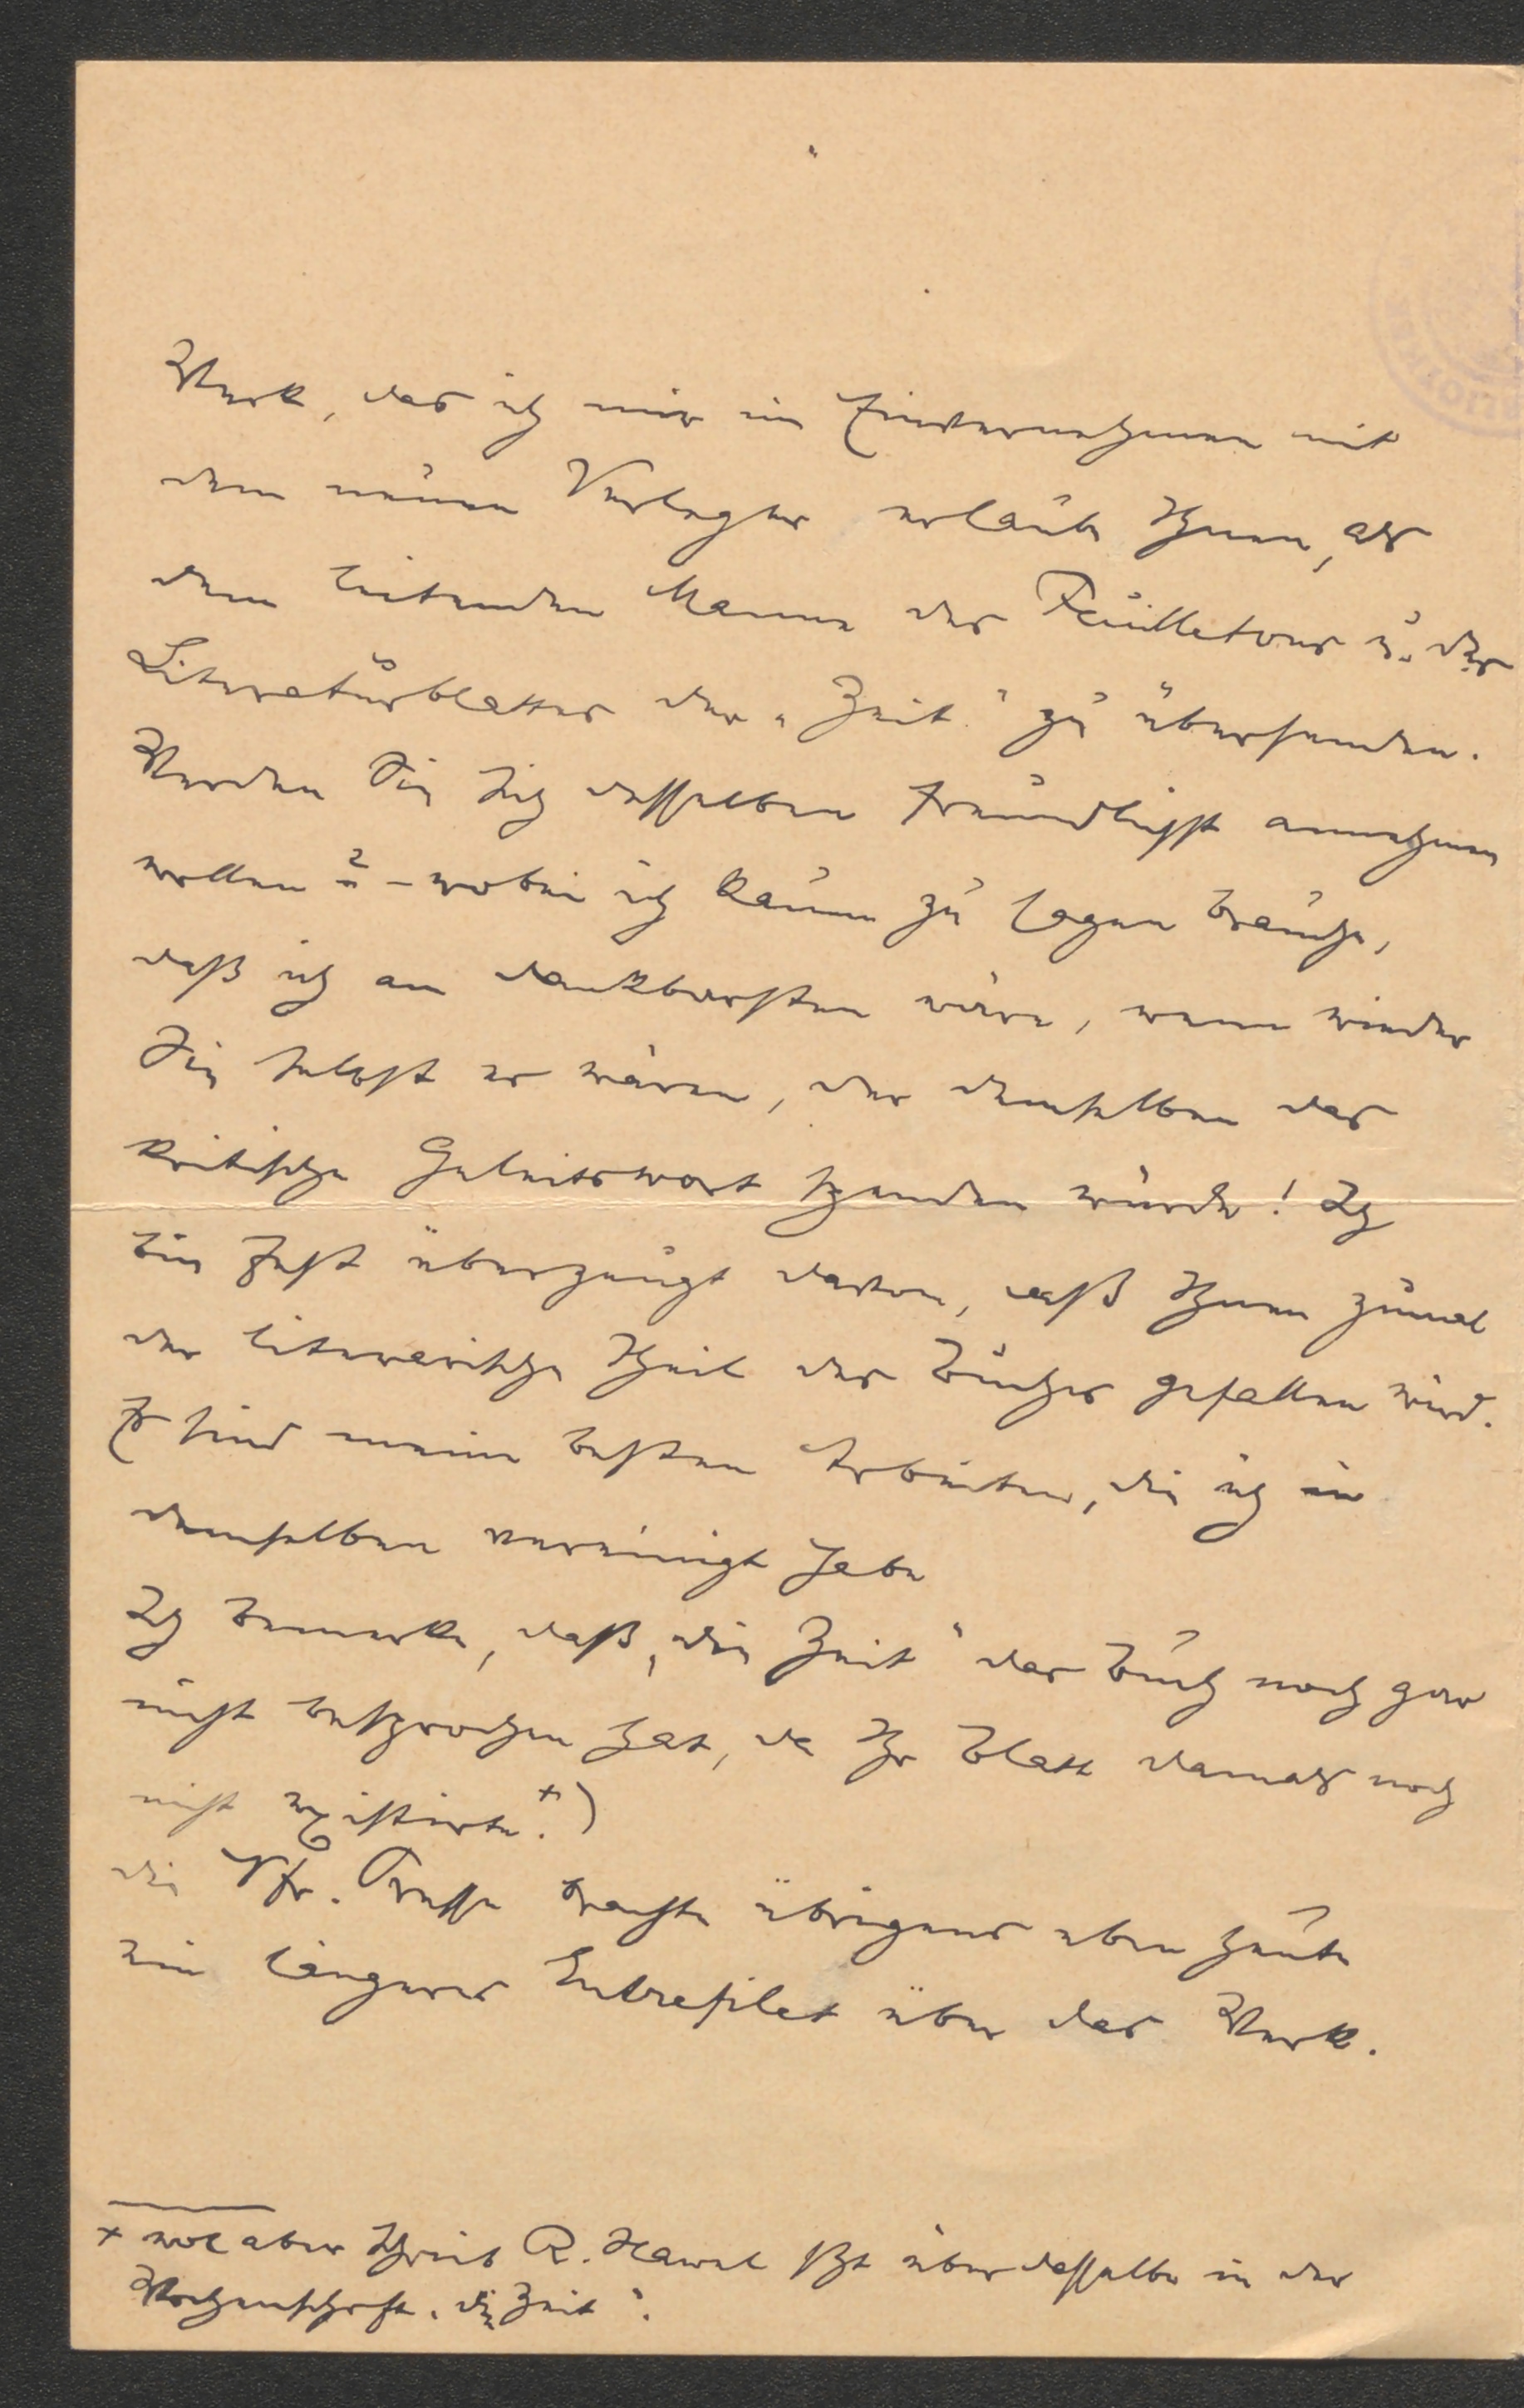 Werk, das ich mir im Einvernehmen mit
dem neuen Verleger erlaube Ihnen, als
dem leitenden Manne des Feuilletons u. des
Literaturblattes der „Zeit“ zu übersenden.
Werden Sie sich desselben freundlichst annehmen
wollen? – wobei ich kaum zu sagen brauche,
daß ich am dankbarsten wäre, wenn wieder
Sie selbst es wären, der demselben das
kritische Geleitswort spenden würde! Ich
bin fest überzeugt davon, daß Ihnen zumal
der literarische Theil des Buches gefallen wird.
Es sind meine besten Arbeiten, die ich in
demselben vereinigt habe
Ich bemerke, daß „die Zeit“ das Buch noch gar
nicht besprochen hat, da Ihr Blatt damals noch
nicht existirte.+)
die Nfr. Presse brachte übrigens eben heute
ein längeres Entrefilet über das Werk.
+ wol aber schrieb R. Hawel über dasselbe in der
Wochenschrift „die Zeit“.